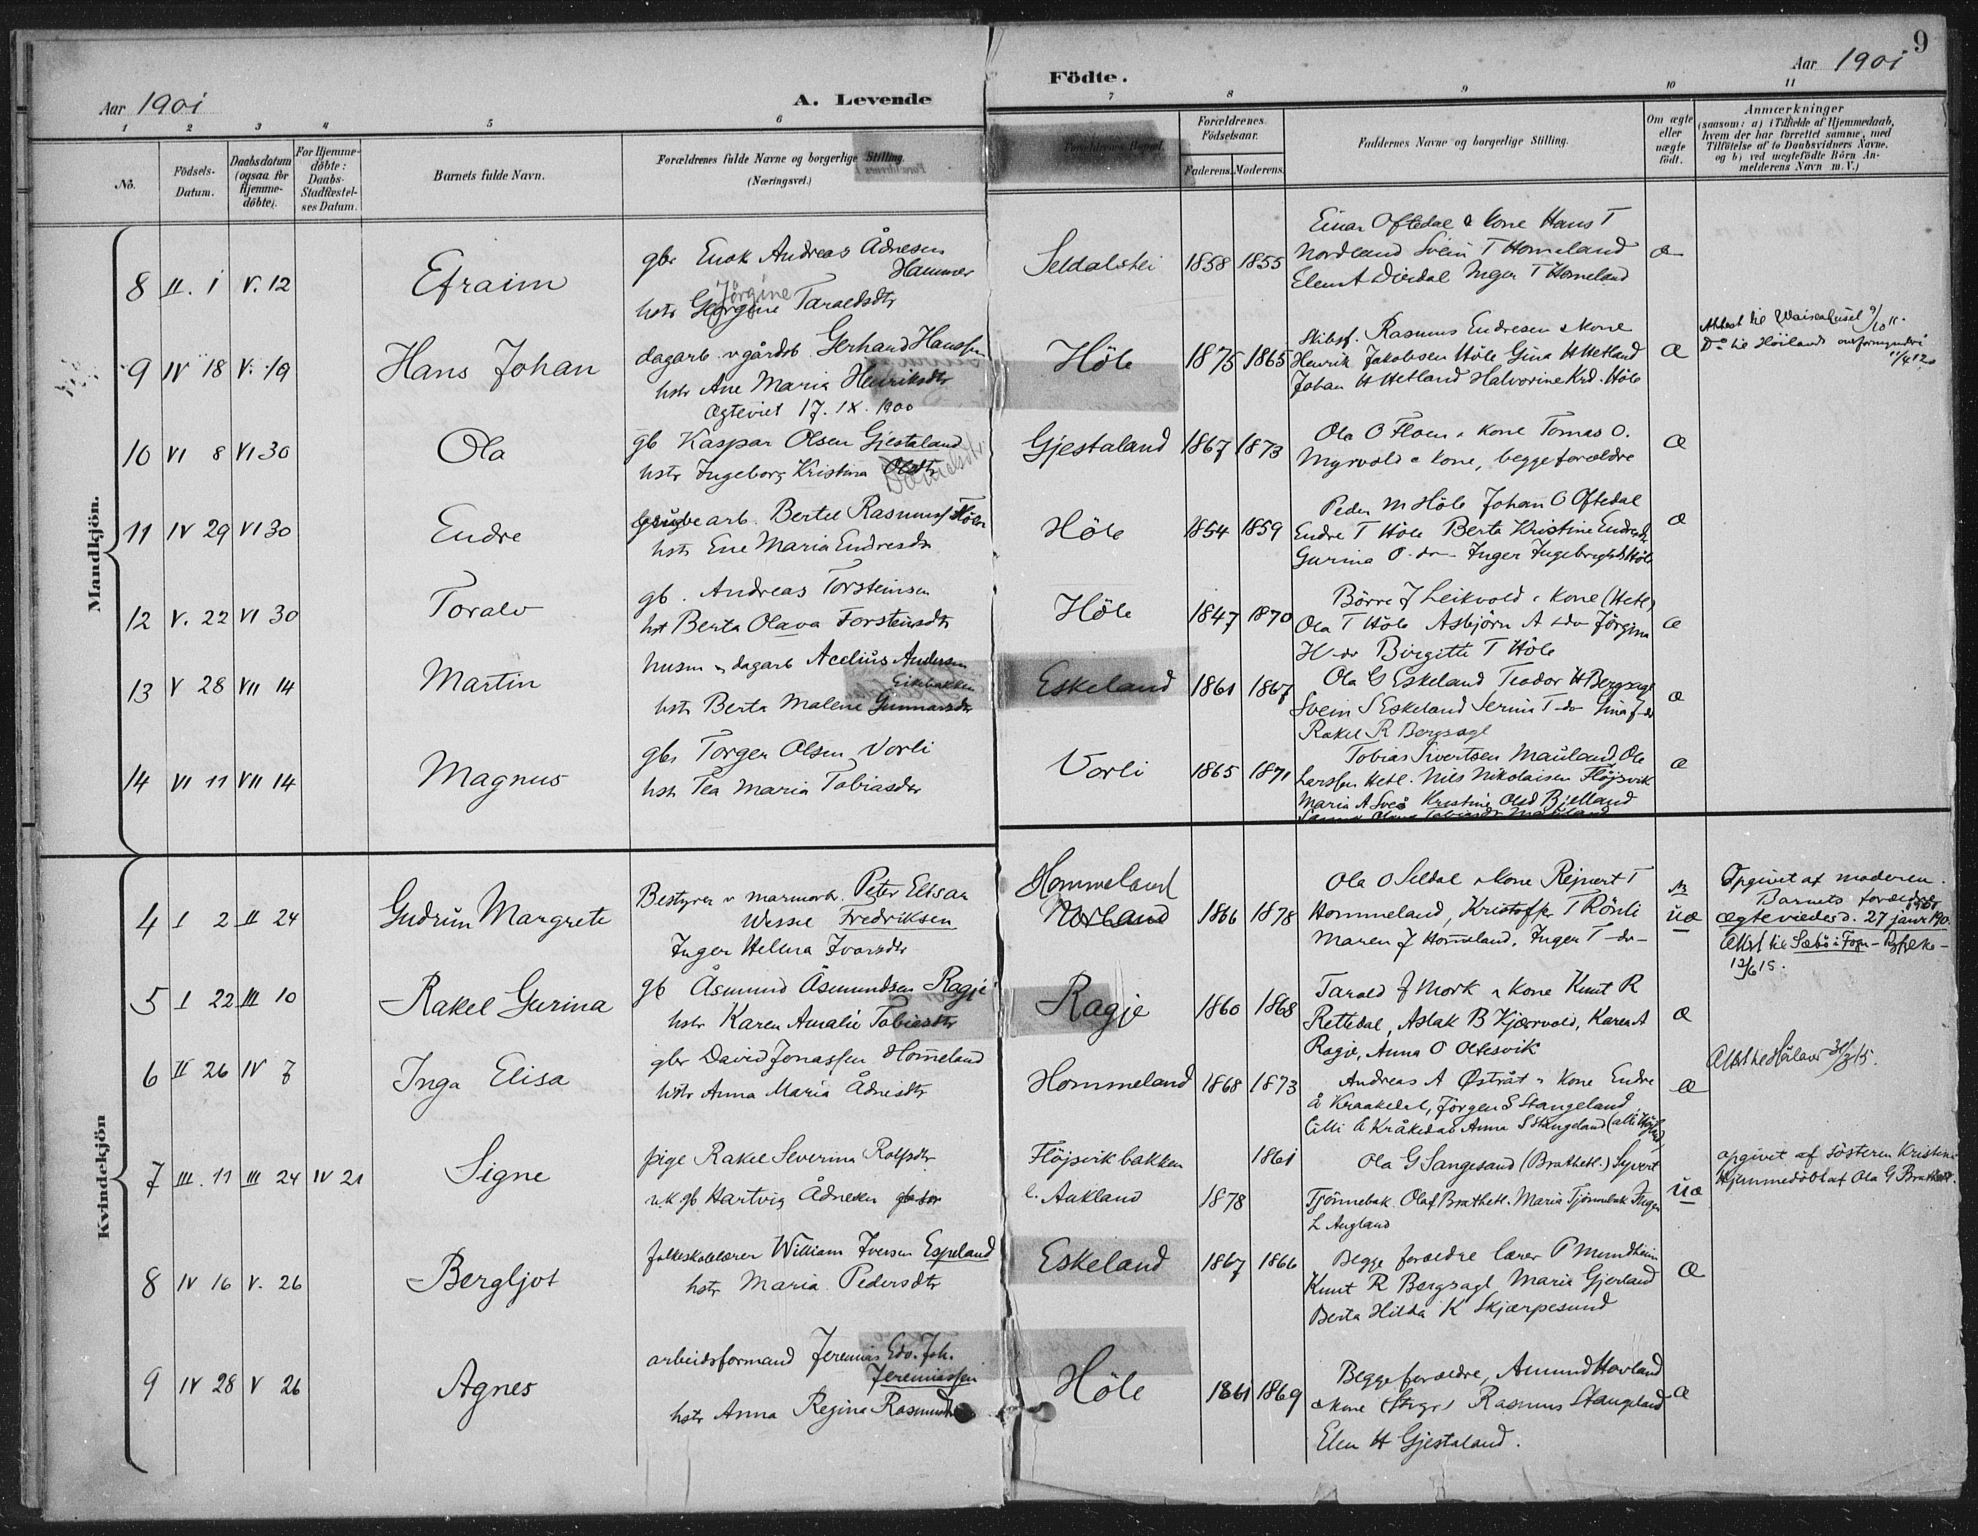 9
Aar 1901
A. Levende
Födte.
Aar 1901
1 2 3 4 5 6 7 8 9 10 11
No.
Födsels-
Datum.
Daabsdatum
(ogsaa for
Hjemme-
döbte).
For Hjemme-
döbte:
Daabs-
Stadfæstel-
ses Datum.
Barnets fulde Navn.
Forældrenes fulde Navne og borgerlige Stilling.
(Næringsvei.)
Forældrenes Bopæl.
Forældrenes
Födselsaar.
Faderens. Moderens.
Faddernes Navne og borgerlige Stilling.
Om ægte
eller
uægte
födt.
Anmærkninger
(saasom: a) i Tilfælde af Hjemmedaab,
hvem der har forrettet samme, med
Tilföielse af to Daabsvidners Navne,
og b) ved uægtefödte Börn An-
melderens Navn m. V.)
Mandkjön.
8 II. 1 V. 12 Efraim
gbr Enok Andreas Ådnesen
Hammer
Jörgine
hstr Georgine Taraldsdtr
Seldalshei 1858 1855
Einar Oftedal & kone Hans T
Nordland Svein T Homeland
Elen A Dirdal Inger T Homeland
æ
9 IV 18 V. 19 Hans Johan
dagarb. v gårdsb. Gerhard Hanssen
hstr Ane Maria Henriksdtr
Ægteviet 17. IX. 1900
Höle 1875 1865
Skibsf. Rasmus Endresen & kone
Henrik Jakobsen Höle Gina H Hetland
Johan H Hetland Halvorine Krd. Höle
æ
Attest til Waisenhuset 9/10 11.
Do til Höilands
10 VI 8 VI 30 Ola
gb Kaspar Olsen Gjestaland
hstr Ingeborg Kristina Olsdtr
Davidsdtr
Gjestaland 1867 1873
Ola O Floen & kone Tomas O.
Myrvold & kone, begge forældre
æ
11 IV 29 VI 30 Endre
grubearb. Bertel Rasmuss Höle
hstr Ene Maria Endresdtr
Höle 1854 1859
Peder M Höle Johan O Oftedal
Endre T Höle Berte Kristine Endresd
Gurina O - do - Inger Ingebregtsd Höle
æ
12 V. 22 VI 30 Toralv
gb. Andreas Torsteinsen
hst Berta Olava Torsteinsdtr
Höle 1847 1870
Börre J Leikvold & kone (Hetl)
Ola T Höle Asbjörn A - do Jörgina
H - do Birgitte T Höle
æ
13 V 28 VII 14 Martin
husm & dagarb Acelius Andersen
Eikbakken
hstr Berta Malene Gunnarsdtr
Eskeland 1861 1867
Ola G Eskeland Teodor H Bergsagl
Svein S Eskeland Serina T - do Gina J - do
Rakel R Bergsagl
æ
14 VI 11 VII 14 Magnus
gbr Torger Olsen Vorli
hstr Tea Maria Tobiasdtr
Vorli 1865 1871
Tobias Sivertsen Mauland Ole
Larssen Hetl. Nils Nikolaisen Flöjsvik
Maria A Sveå Kristine Olsd Bjelland
Tobiasdtr Mauland
æ
Kvindekjön
4 I 2 II 24 Gudrun Margrete
Bestyrer v marmorb. Peter Elisar
Wessel Fredriksen
Inger Helena Ivarsdtr
Hommeland
Norland
1866 1878
Ola O Seldal & kone Rejnert T
Hommeland, Kristoffer T Rönli
Maren J Homeland, Inger T - do -
uæ
Opgivet af moderen.
Barnets forældre
ægteviedes d. 27 janr 1901
Attest til Sæbö i Fogn
12/6 15.
5 I 22 III 10 Rakel Gurina
gb Åsmund Åsmundsen Ragje
hstr Karen Amalie Tobiasdtr
Ragje 1860 1868
Tarald J Mork & kone Knut R
Rettedal, Aslak B Kjærvold, Karen A
Ragje, Anna O Oltesvik
æ
6 II 26 IV 7 Inga Elisa
gbr David Jonassen Homeland
hstr Anna Maria Ådnesdtr
Hommeland 1868 1873
Andreas A Østråt & kone Endre
Å Kraakedal, Jörgen S Stangeland
Cilli Å Kråkedal Anna S Stangeland
æ
31/3 15.
7 III. 11 III 24 IV 21 Signe
pige Rakel Severina Rolfsdtr
u.k. gb Hartvig Ådnesen
Flöjsvikbakken
Aukland
1861
1878
Ola G Sangesand (Brathetl.) Syvert
Tjönnebak. Olaf Brathetl. Maria Tjönnebak Inger
L Augland
uæ
opgivet af sösteren Kristine
Hjemmedöbt af Ola G Brathetl.
8 IV 16 V. 26 Bergljot
folkeskolelærer William Iversen Espeland
hstr Maria Pedersdtr
Eskeland 1867 1866
Begge forældre lærer P Mundheim
Knut R Bergsagl Maria Gjerland
Berta Hilda K Skjærpesund
æ
9 IV 28 V 26 Agnes
arbeidsformand Jeremias Edv. Joh.
Jeremiassen
hstr Anna Regina Rasmusdtr
Höle 1861 1869
Begge forældre, Amund Hovland
& kone Rasmus Stangeland
Elen H Gjestaland.
æ